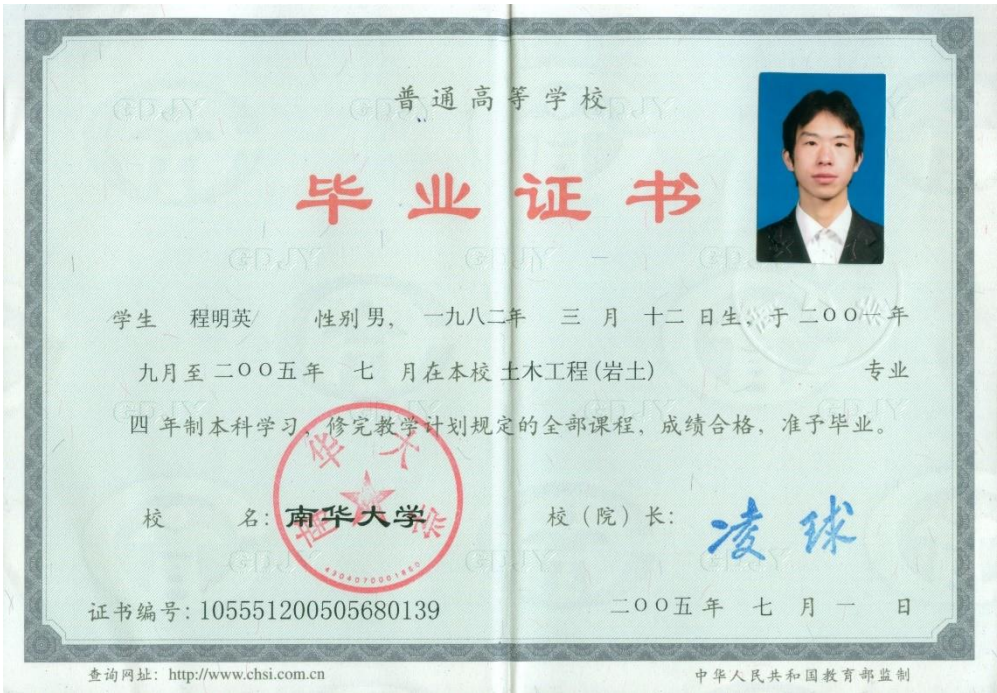 普通高等学校
毕业证书
学生 程明英 性别 男， 一九八二年 三 月 十二 日生，于 二〇〇一年
九月至 二〇〇五年 七 月在本校 土木工程(岩土) 专业
四 年制本科学习，修完教学计划规定的全部课程，成绩合格，准予毕业。
校 名：南华大学
校（院）长：凌球
南华大学
证书编号：105551200505680139
二〇〇五年 七 月 一 日
查询网址：http://www.chsi.com.cn
中华人民共和国教育部监制